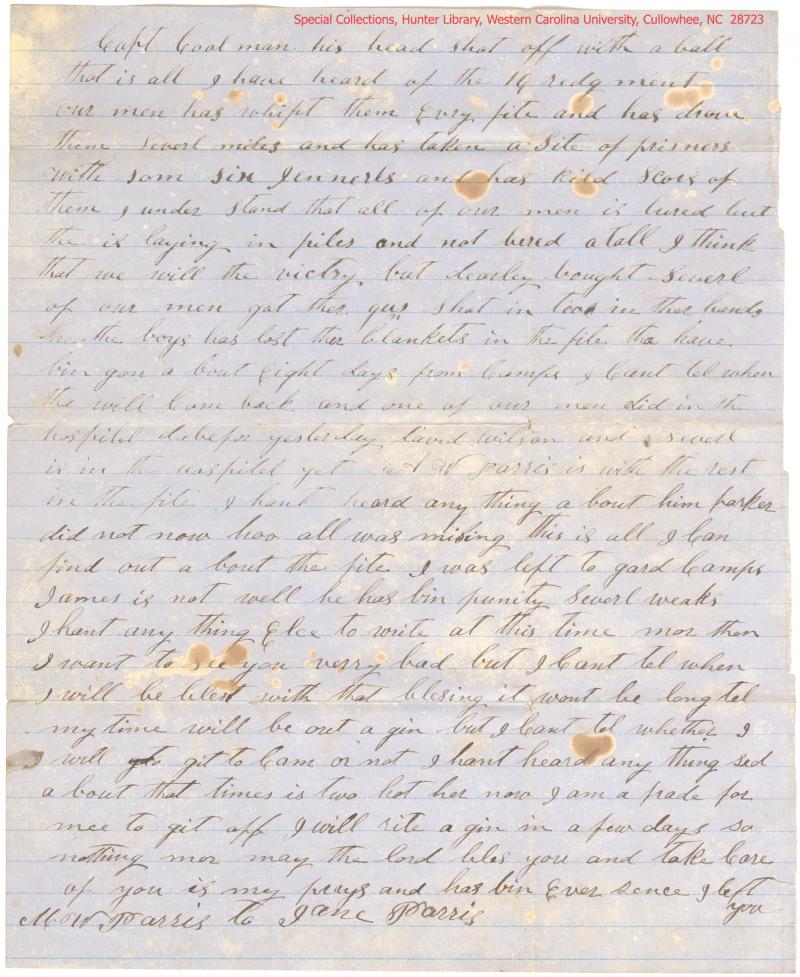 Special Collections, Hunter Library, Western Carolina University, Cullowhee, NC 28723
Capt Coalman his head shot off with a ball
that is all I have heard of the 16 redgment
our men has whipt them Evry fite and has drove
them Severl miles and has taken a Site of prisners
with som six Jennerls and has kild Scors of
them I under stand that all of our men is bured but
the is laying in piles and not bered atall I think
that we will the victry but dearley bought Severl
of our men got ther guns shot in too in ther hands
the boys has lost ther blankets in the fite tha have
bin gon a bout Eight days from Camps I Cant tel when
tha will Com back and one of our men did in the
hospitel dabefor yesterday david wilson and severl
is in the hospitel yet A W Parris is with the rest
in the fite I hant heard any thing a bout him parker
did not now hoo all was mising this is all I Can
find out a bout the fite I was left to gard Camps
James is not well he has bin punity Severl weaks
I hant any thing Elce to write at this time mor then
I want to see you verry bad but I Cant tel when
I will be blest with that blesing it wont be long tel
my time will be out a gin but I Cant tel whether I
will git to Cam or not I hant heard any thing sed
a bout that times is two hot her now I am a frade for
mee to git off I will rite a gin in a few days so
nothing mor may the lord bles you and take Care
of you is my prays and has bin Ever sence I left
you
M W Parris to Jane Parris